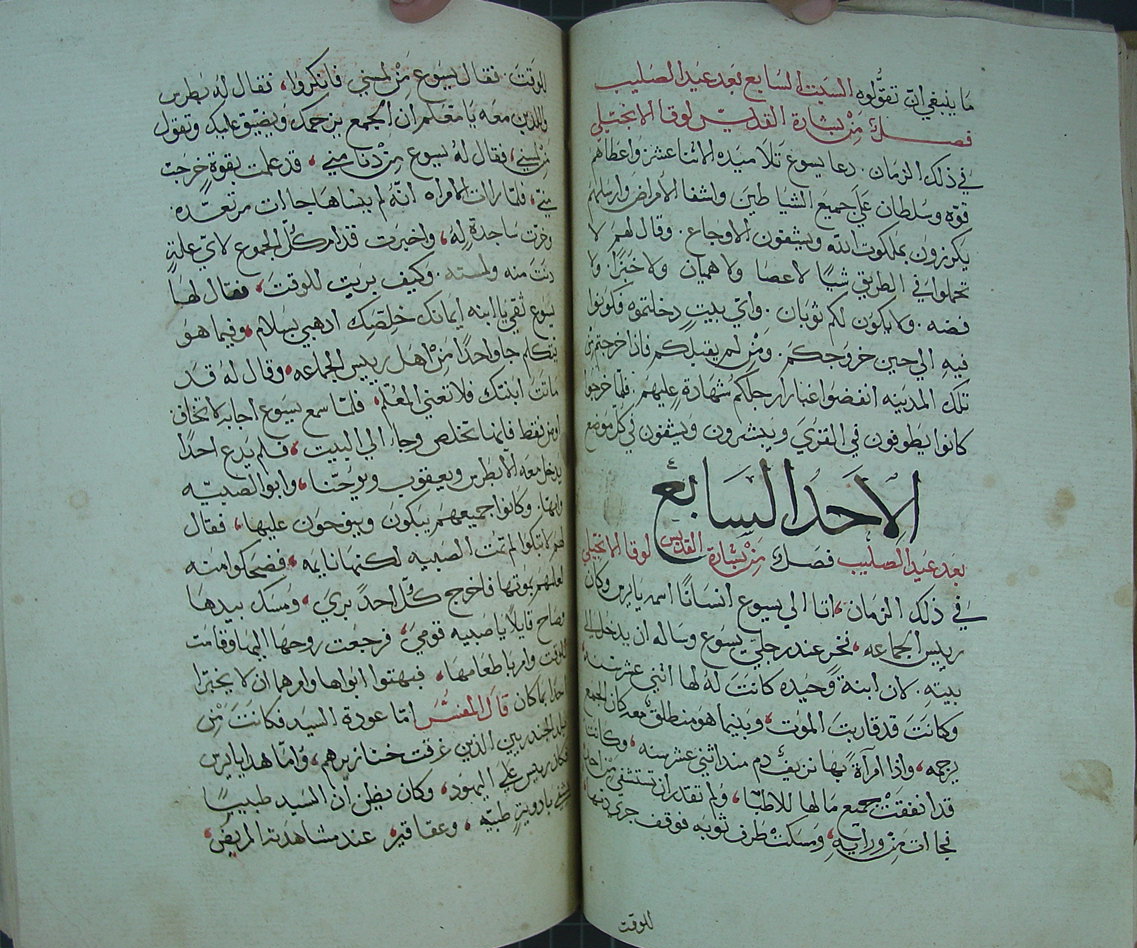 ما ينبغي ان تقولوه السبت السابع بعد عيد الصليب
فصل من بشارة القديس لوقا الانجيلي
في ذلك الزمان. دعا يسوع تلاميده الاثنا عشر واعطاهم
قوه وسلطان علي جميع الشياطين واشفا الامراض وارسلهم
يكرزون بملكوت الله ويشفون الاوجاع. وقال لهم لا
تحملوا في الطريق شيا لا عصا ولا هميان ولا خبزا ولا
فضه. ولا يكون لكم ثوبان. واي بيت دخلتموه فكونوا
فيه الي حين خروجكم. ومن لم يقبلكم فاذا خرجتم من
تلك المدينه انفضوا غبار ارجلكم شهادة عليهم. فلما خرجوا
كانوا يطوفون في القري ويبشرون ويشفون في كل موضع
الاحد السابع
بعد عيد الصليب فصل من بشارة القديس لوقا الانجيلي
في ذلك الزمان، اتا الي يسوع انسانا اسمه يايرس وكان
رييس الجماعه، فخر عند رجلي يسوع وساله ان يدخل الي
بيته. لان ابنة وحيده كانت له لها اثني عشر سنه،
وكانت قد قاربت الموت، وبينما هو منطلق معه كان الجمع
يزحمه، واذا امرآة بها نزيف دم مند اثني عشر سنه، وكانت
قد انفقت جميع مالها للاطبا، ولم تقدر ان تستشفي من احد
فجاات من ورايه، ومسكت طرف ثوبه فوقف جري دمها،
للوقت
للوقت. فقال يسوع من لمسني فانكروا، فقال له بطرس
والدين معه يا معلم ان الجمع يزحمك ويضيق عليك وتقول
من لمسني، فقال له يسوع من دنا مني، قد علمت بقوة خرجت
مني، فلما رات الامراه انه لم ينساها جاات مرتعده.
وخرت ساجدة له، واخبرت قدام كل الجموع لاي علة
دنت منه ولمسته. وكيف بريت للوقت، فقال لها
يسوع ثقي يا ابنه ايمانك خلصك ادهبي بسلام، وفيما هو
يتكلم جا واحدا من اهل رييس الجماعه، وقال له قد
ماتت ابنتك فلا تعني المعلم، فلما سمع يسوع اجابه لا تخاف
اومن فقط فانها تخلص وجا الي البيت، فلم يدع احدا
يدخل معه الا بطرس ويعقوب ويوحنا، وابو الصبيه
وامها. وكانوا جميعهم يبكون وينوحون عليها، فقال
لهم لا تبكوا لم تمت الصبيه لكنها نايمه، فضحكوا منه
لعلمهم بموتها فاخرج كل احد بري، ومسك بيدها
وصاح قايلا يا صبيه قومي، فرجعت روحها اليها وقامت
للوقت وامر باطعامها، فبهتوا ابواها وامرهما ان لا يخبرا
احدا بما كان قال المفسر اما عودة السيد فكانت من
بلد الجدريين الذين غرقت خنازيرهم، واما هدا يايرس
فكان رييس علي اليهود، وكان يظن ان السيد طبيبا
يشفي بادوية طبيه، وعقاقير عند مشاهدته المريض،